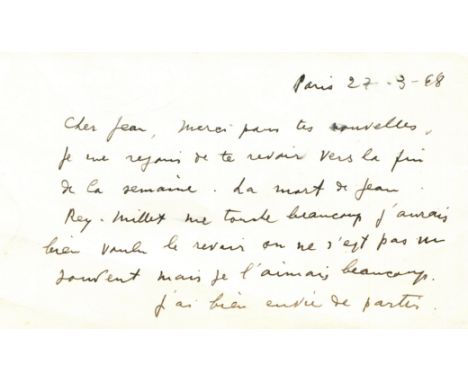 Paris 27-3-68
Cher Jean, Merci pour tes nouvelles,
je me rejouis de te revoir vers la fin
de la semaine. La mort de Jean
Rey-Millet me touche beaucoup j'aurais
bien voulu le revoir on ne s'est pas vu
souvent mais je l'aimais beaucoup.
J'ai bien envie de partir.